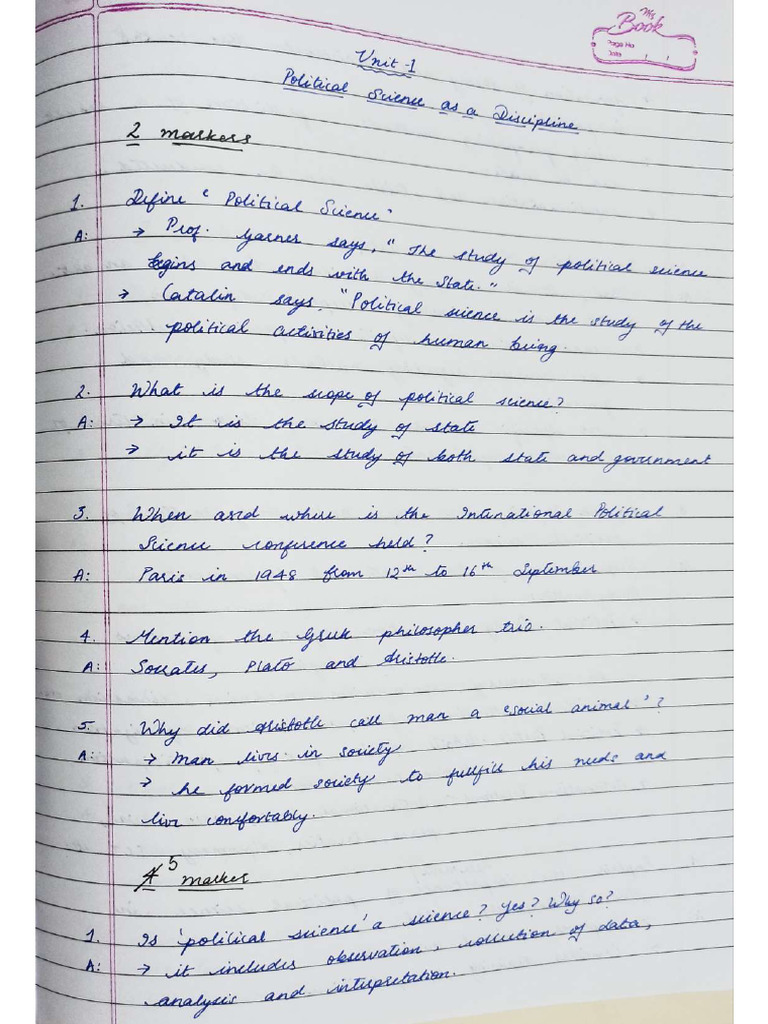 My
Book
Page No
Date / /
Unit -1
Political Science as a Discipline
2 markers
1. Define " Political Science"
A: → Prof. Garner says, " The study of political science
begins and ends with the State."
→ Catalin says, "Political science is the study of the
political activities of human being.
2. What is the scope of political science?
A: → It is the study of state
→ it is the study of both state and government
3. When and where is the International Political
Science conference held?
A: Paris in 1948 from 12th to 16th September
4. Mention the Greek philosopher trio.
A: Socrates, Plato and Aristotle.
5. Why did Aristotle call man a 'social animal'?
A: → Man lives in society
→ he formed society to fullfill his needs and
live comfortably.
5 marker
1. Is 'political science' a science? Yes? Why so?
A: → it includes observation, collection of data,
analysis and interpretation.